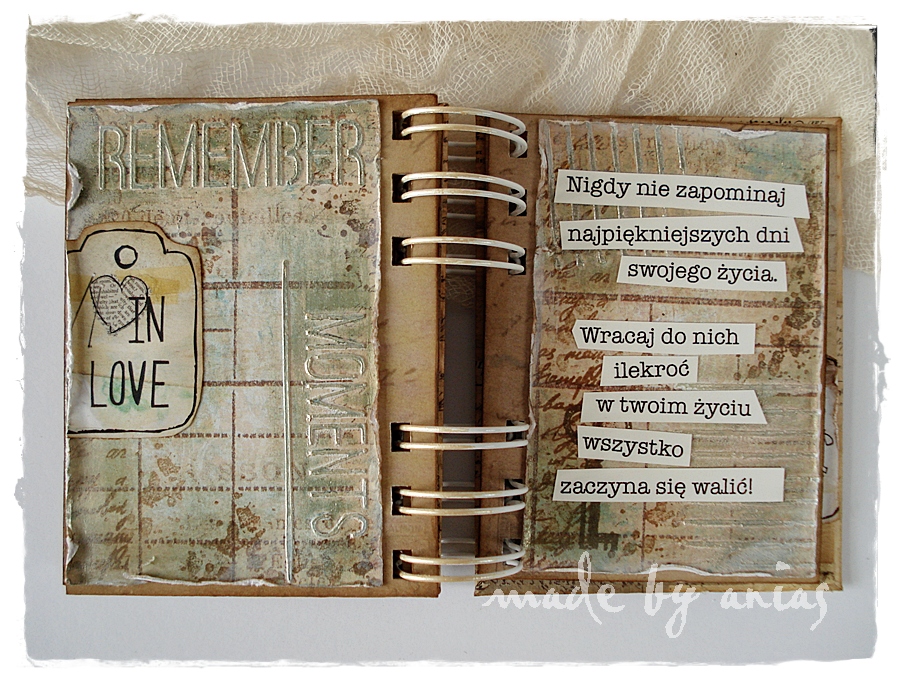 REMEMBER
MOMENTS
IN
LOVE
Nigdy nie zapominaj
najpiękniejszych dni
swojego życia.
Wracaj do nich
ilekroć
w twoim życiu
wszystko
zaczyna się walić!
made by anias